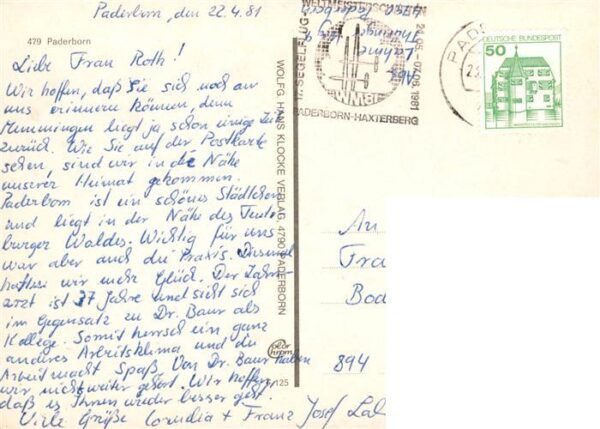 Paderborn, den 22.4.81
479 Paderborn
Liebe Frau Roth!
Wir hoffen, daß Sie sich noch an
uns erinnern können, denn
Memmingen liegt ja schon einige Zeit
zurück. Wie Sie auf der Postkarte
sehen, sind wir in die Nähe
unserer Heimat gekommen.
Paderborn ist ein schönes Städtchen
und liegt in der Nähe des Teuto
burger Waldes. Wichtig für uns
war aber auch die Praxis. Diesmal
hatten wir mehr Glück. Der Zahn-
arzt ist 37 Jahre und sieht sich
im Gegensatz zu Dr. Baur als
Kollege. Somit herrscht ein ganz
anderes Arbeitsklima und die
Arbeit macht Spaß. Von Dr. Baur haben
wir nichts weiter gehört. Wir hoffen,
daß es Ihnen wieder besser geht.
Viele Grüße Cornelia + Franz Josef
WOLFG. HANS KLOCKE VERLAG, 4790 PADERBORN
125
WELTMEISTERSCHAFTEN
SEGELFLUG
24.05.-07.06.1981
WM81
PADERBORN-HAXTERBERG
PAD
DEUTSCHE BUNDESPOST
50
An
Fra
Bod
894